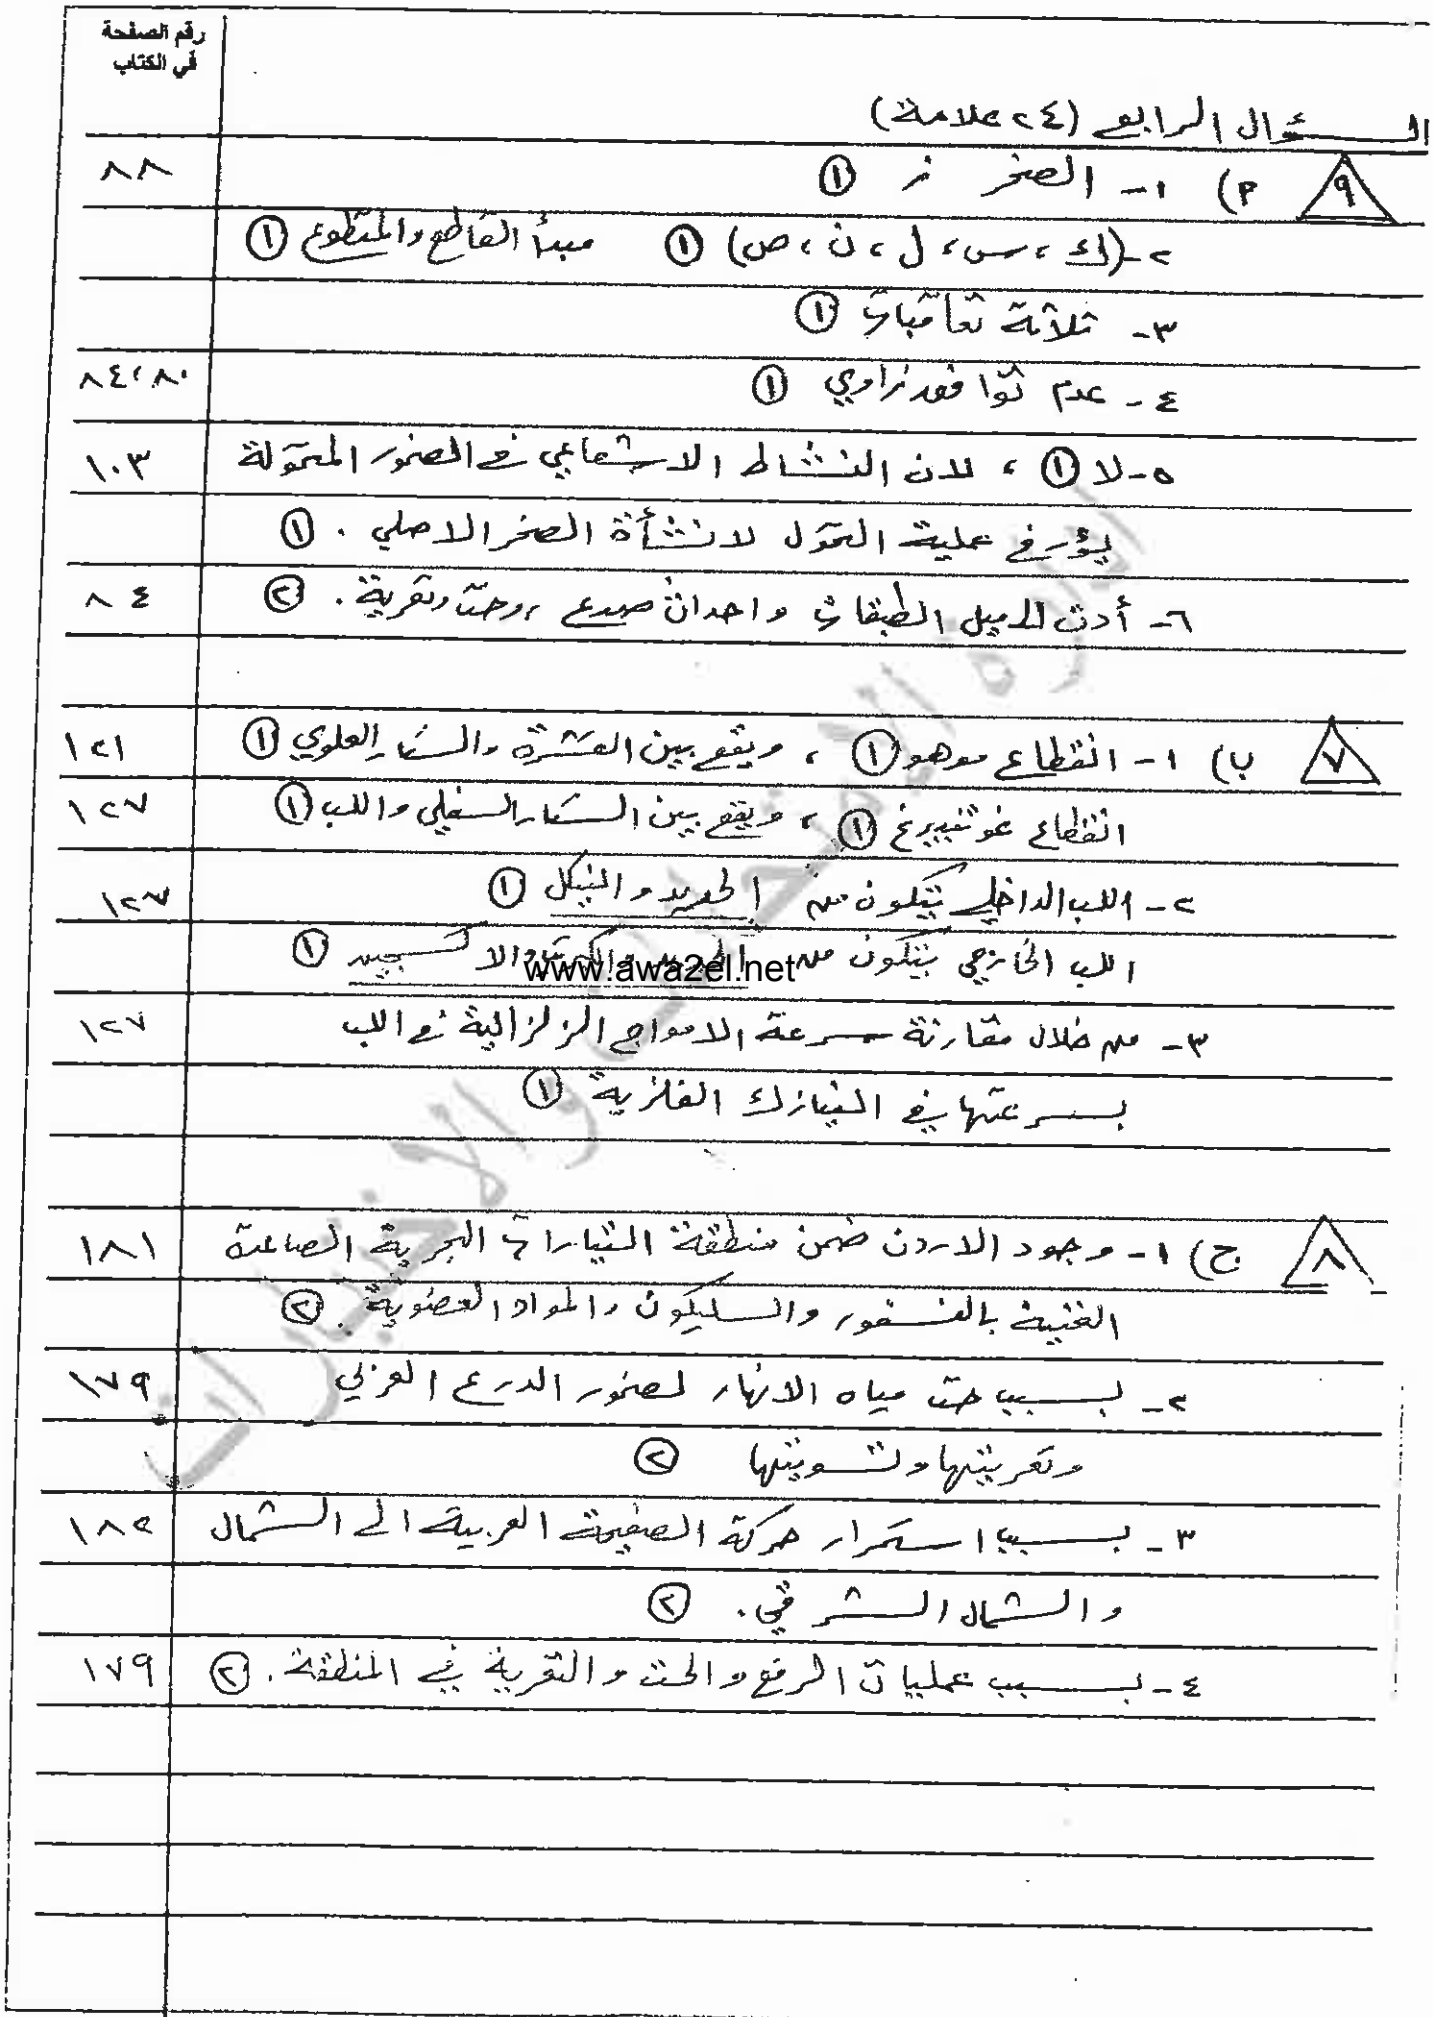 رقم الصفحة
في الكتاب
السؤال الرابع (٢٤ علامة)
٩ أ) ١- الصخر ز ① ٨٨
٢- (ك ، س ، ل ، ن ، ص) ① مبدأ القاطع والمقطوع ①
٣- ثلاثة تعاقبات ①
٤- عدم توافق زاوي ① ٨٠، ٨٤
٥- لا ① ، لان النشاط الاشعاعي في الصخور المتحولة ١٠٣
يؤرخ عملية التحول لا نشأة الصخر الاصلي . ①
٦- أدت الى ميل الطبقات واحداث صدع ، وحت وتعرية . ② ٨٤
٧ ب) ١- انقطاع موهو ① ، ويقع بين القشرة والستار العلوي ① ١٢١
انقطاع غوتنبيرغ ① ، ويقع بين الستار السفلي واللب ① ١٢٧
٢- اللب الداخلي يتكون من الحديد والنيكل ① ١٢٧
اللب الخارجي يتكون من الحديد والكبريت والاكسجين ①
www.awa2el.net
٣- من خلال مقارنة سرعة الامواج الزلزالية في اللب ١٢٧
بسرعتها في النيازك الفلزية ①
٨ ج) ١- وجود الاردن ضمن منطقة التيارات البحرية الصاعدة ١٨١
الغنية بالفسفور والسليكون والمواد العضوية . ②
٢- بسبب حت مياه الانهار لصخور الدرع العربي ١٧٩
وتعريتها وتسويتها ②
٣- بسبب استمرار حركة الصفيحة العربية الى الشمال ١٨٢
والشمال الشرقي . ②
٤- بسبب عمليات الرفع والحت والتعرية في المنطقة . ② ١٧٩
ادارة الامتحانات والاختبارات